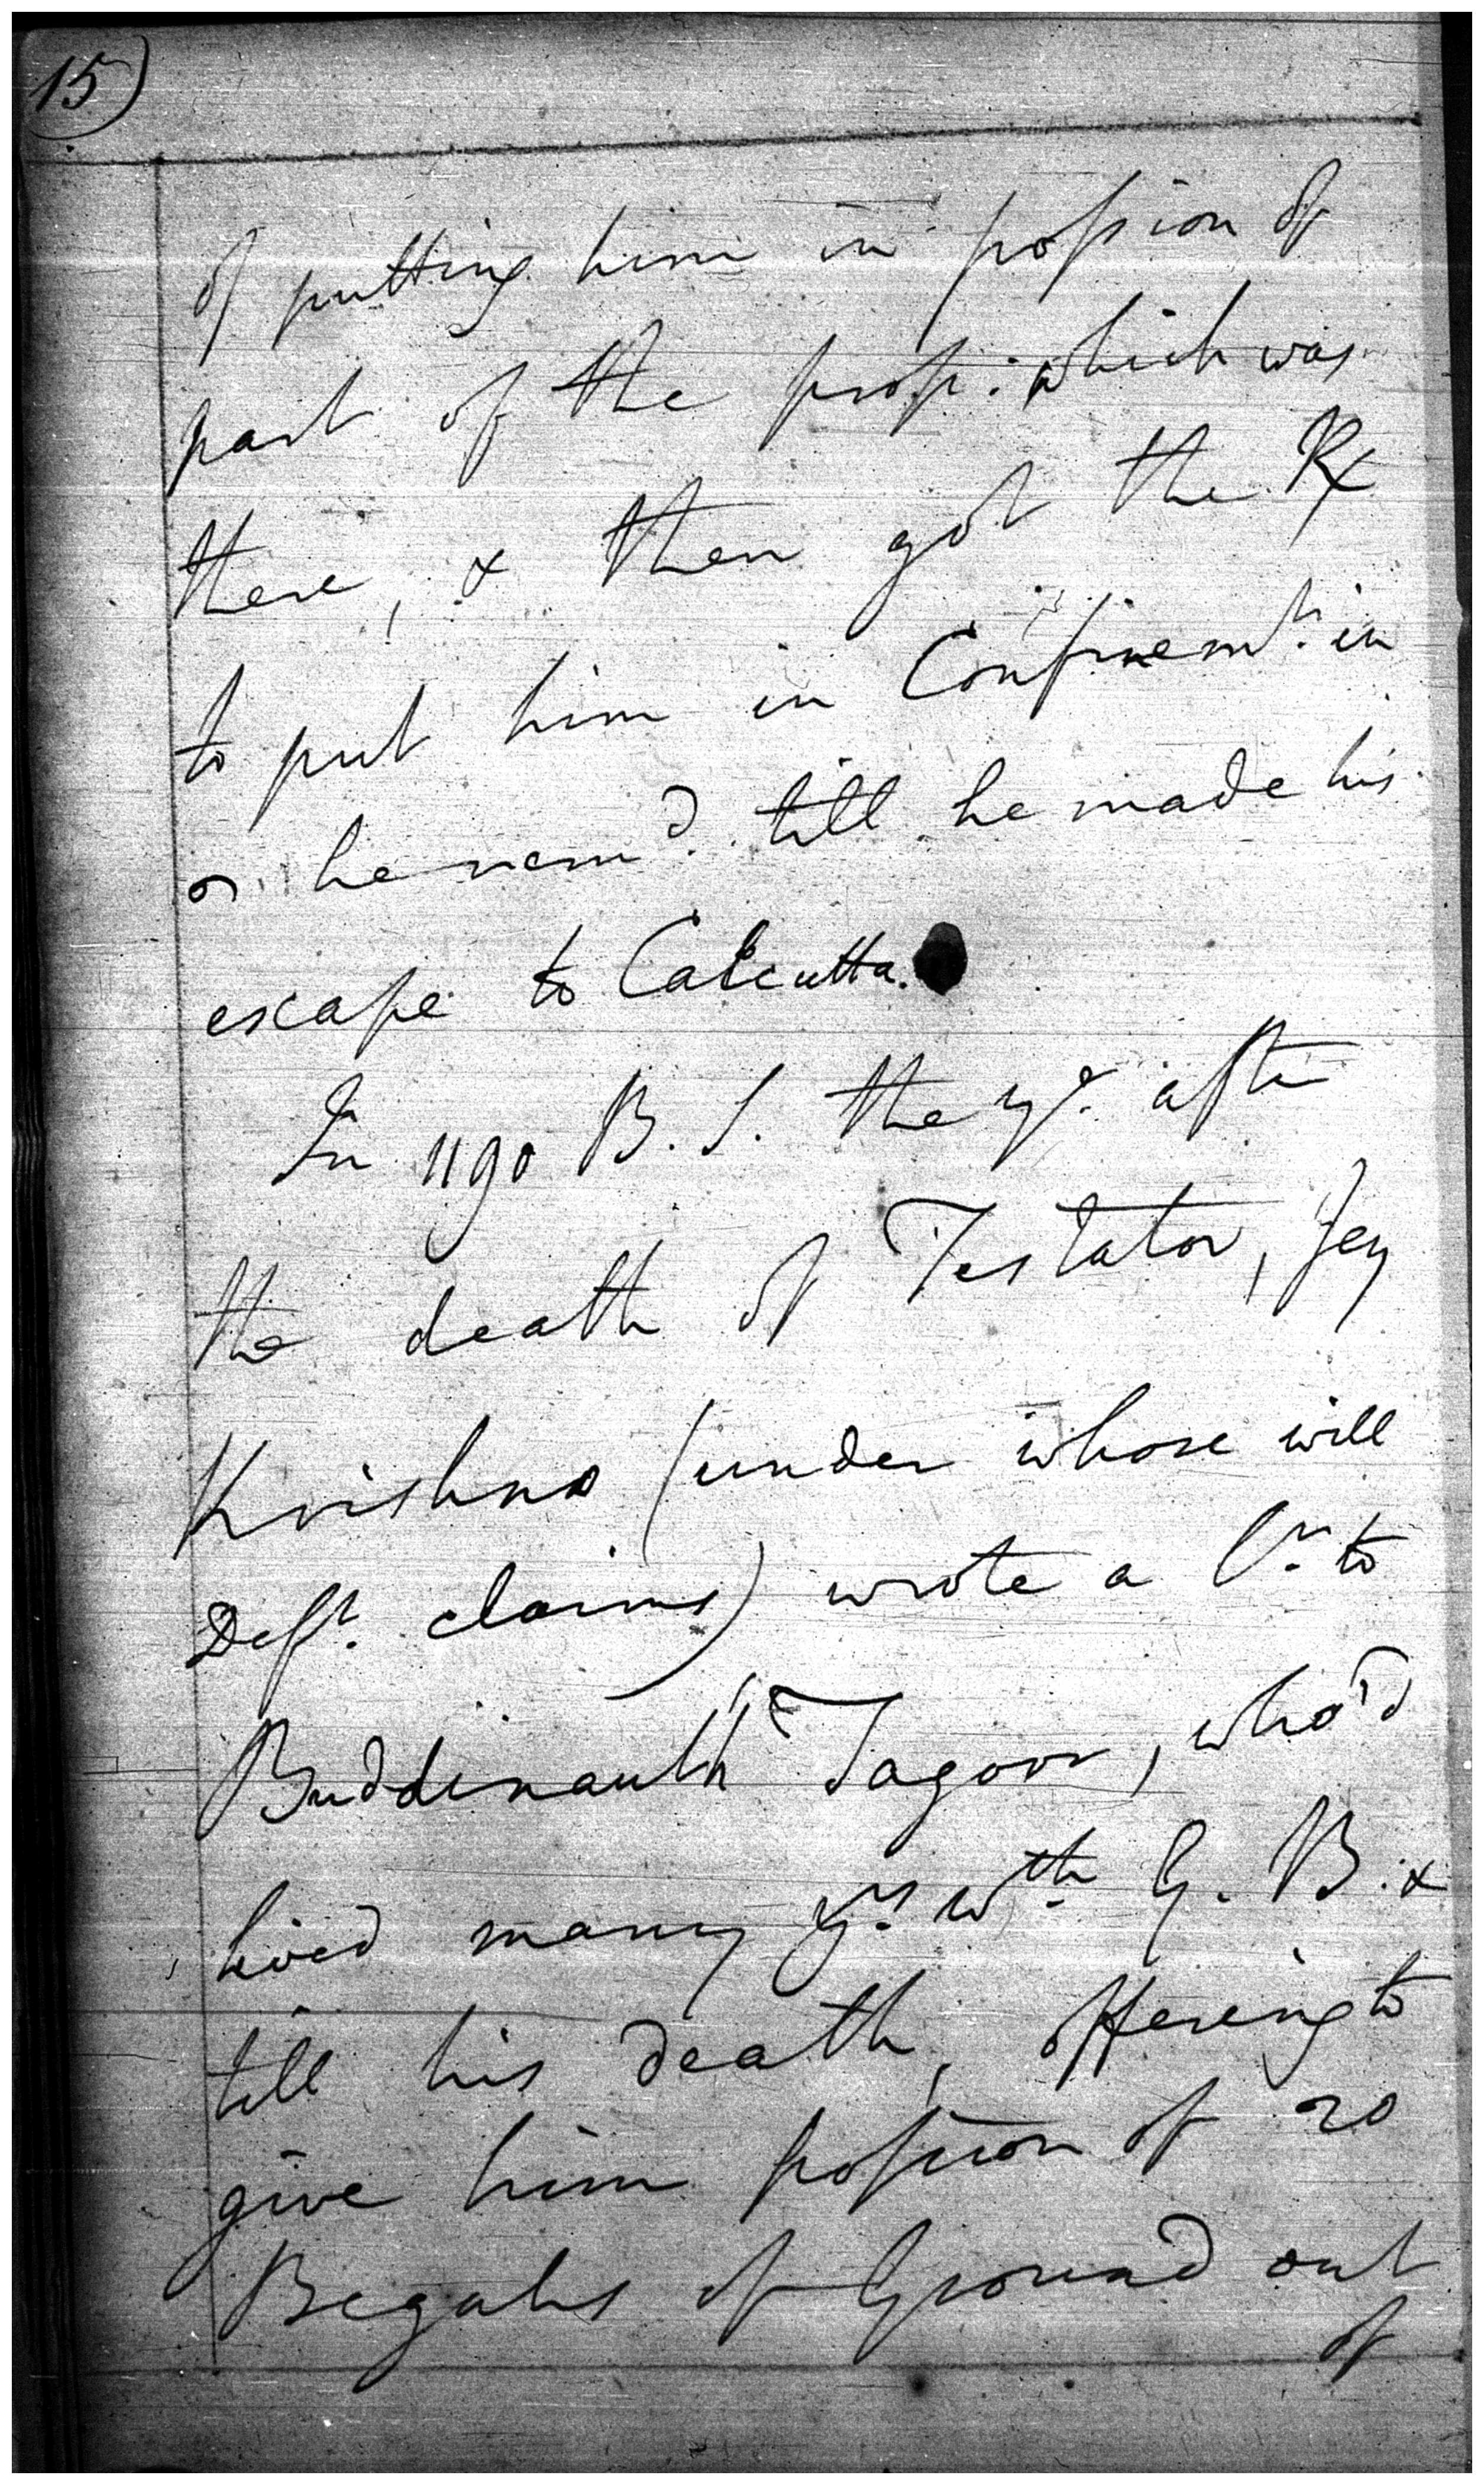 15)
of putting him in possion of
part of the prop: which was
there, & then got the Rx
to put him in Confinemt. in
he remd. till he made his
escape to Calcutta.
In 1190 B. S. the yr. after
the death of Testator, Jey
Krishno (under whose will
Deft. claims) wrote a lr. to
Buddinauth Tagoor, who'd
lived many yrs. wth G. B. &
till his death, offering to
give him possion of 20
Begahs of Ground out
of